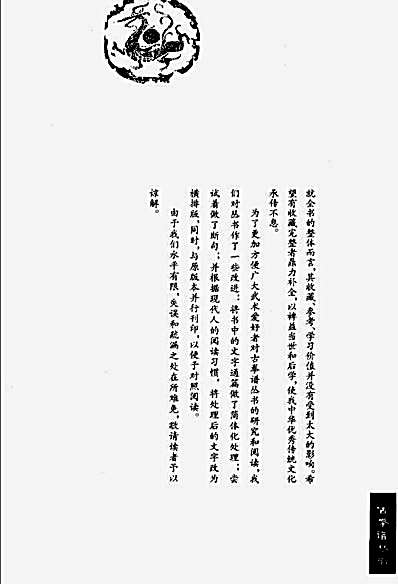 就全书的整体而言，其收藏、参考、学习价值并没有受到太大的影响。希
望有收藏完整者鼎力补全，以裨益当世和后学，使我中华优秀传统文化
承传不息。
为了更加方便广大武术爱好者对古拳谱丛书的研究和阅读，我
们对丛书作了一些改进：将书中的文字通篇做了简体化处理；尝
试着做了断句；并根据现代人的阅读习惯，将处理后的文字改为
横排版，同时，与原版本并行刊印，以便于对照阅读。
由于我们水平有限，失误和疏漏之处在所难免，敬请读者予以
谅解。